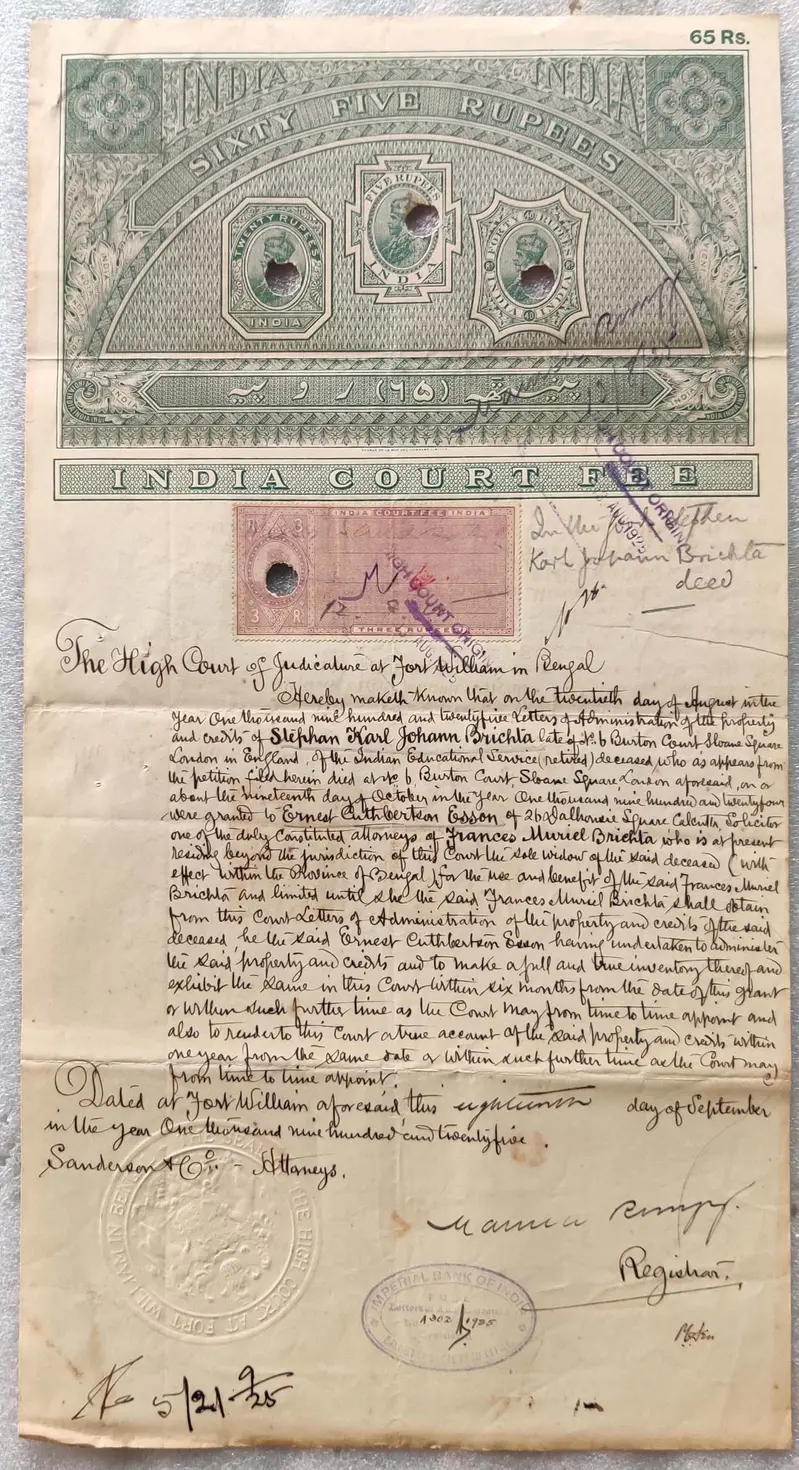 65 Rs.
INDIA INDIA
SIXTY FIVE RUPEES
FIVE RUPEES
INDIA
TWENTY RUPEES
INDIA
FORTY RUPEES
40
INDIA INDIA
پینسٹھ (٦۵) روپیہ
INDIA COURT FEE
INDIA COURT FEE INDIA
3 R
THREE RUPEES
In the
Karl Johann Brichta
deed
The High Court of Judicature at Fort William in Bengal
Hereby maketh Known that on the twentieth day of August in the
Year One thousand nine hundred and twentyfive Letters of Administration of the property
and credits of Stephan Karl Johann Brichta late of No. 6 Burton Court Sloane Square
London in England, of the Indian Educational Service (retired) deceased, who as appears from
the petition filed herein died at No 6, Burton Court, Sloane Square, London aforesaid, on or
about the nineteenth day of October in the Year One thousand nine hundred and twentyfour
were granted to Ernest Cuthbertson Esson of 26 Dalhousie Square Calcutta, Solicitor
one of the duly Constituted attorneys of Frances Muriel Brichta who is at present
residing beyond the jurisdiction of this Court the sole widow of the said deceased (with
effect within the Province of Bengal) for the use and benefit of the said Frances Muriel
Brichta and limited until she the said Frances Muriel Brichta shall obtain
from this Court Letters of Administration of the property and credits of the said
deceased, he the said Ernest Cuthbertson Esson having undertaken to administer
the said property and credits and to make a full and true inventory thereof and
exhibit the same in this Court within six months from the date of this grant
or within such further time as the Court may from time to time appoint and
also to render to this Court a true account of the said property and credits within
one year from the same date or within such further time as the Court may
from time to time appoint.
Dated at Fort William aforesaid this eighteenth day of September
in the year One thousand nine hundred and twentyfive.
Sanderson & Co. - Attorneys.
Registrar.
IMPERIAL BANK OF INDIA